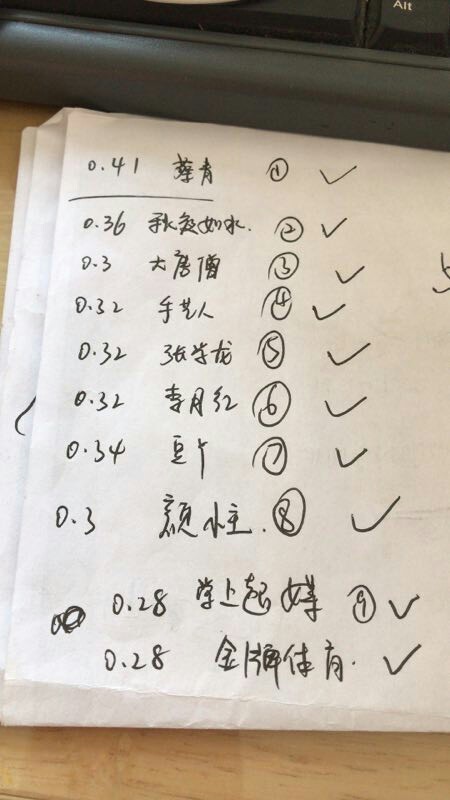 Alt
0.41 蔡青 ① ✓
0.36 秋意如水. ② ✓
0.3 大唐僧 ③ ✓
0.32 手艺人 ④ ✓
0.32 张华龙 ⑤ ✓
0.32 李月红 ⑥ ✓
0.34 豆丫 ⑦ ✓
0.3 颜 ⑧ ✓
0.28 掌上 ⑨ ✓
0.28 金牌体育. ✓